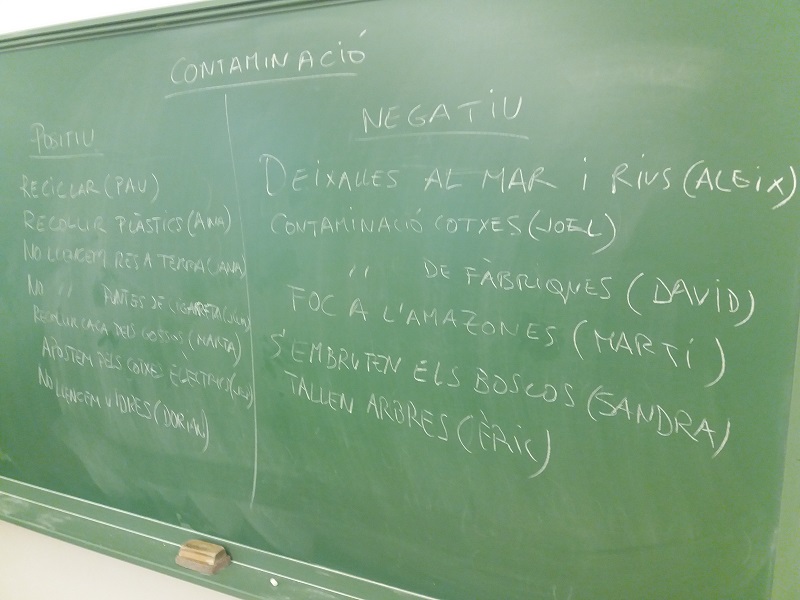 CONTAMINACIÓ
POSITIU
RECICLAR (PAU)
RECOLLIR PLÀSTICS (ANA)
NO LLENCEM RES A TERRA (JANA)
NO '' PUNTES DE CIGARRETA
RECOLLIR CACA DELS GOSSOS (MARTA)
APOSTEM PELS COTXES ÈLECTRICS
NO LLENCEM VIDRES (DORIAN)
NEGATIU
DEIXALLES AL MAR i RIUS (ALEIX)
CONTAMINACIÓ COTXES (JOEL)
'' DE FÀBRIQUES (DAVID)
FOC A L'AMAZONES (MARTÍ)
S'EMBRUTEN ELS BOSCOS (SANDRA)
TALLEN ARBRES (ÈRIC)